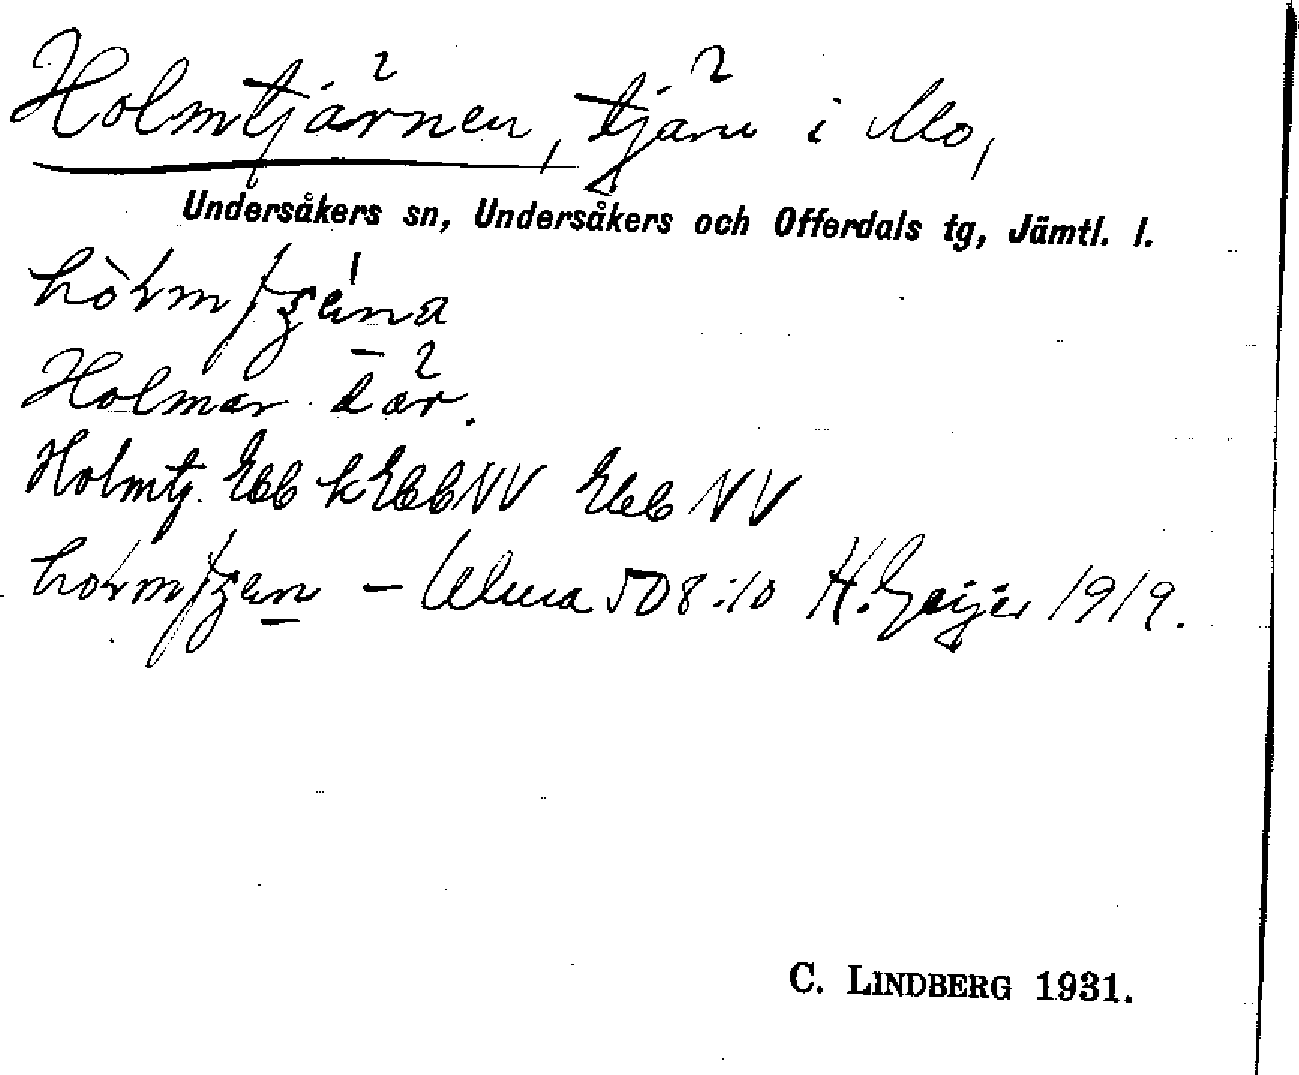 Holmtjärnen, tjärn i Mo,
Undersåkers sn, Undersåkers och Offerdals tg, Jämtl. l.
Holmar där.
Holmtj. Ebb k Ebb NV Ebb NV
– Ulma 508:10 H. Geijer 1919.
C. LINDBERG 1931.